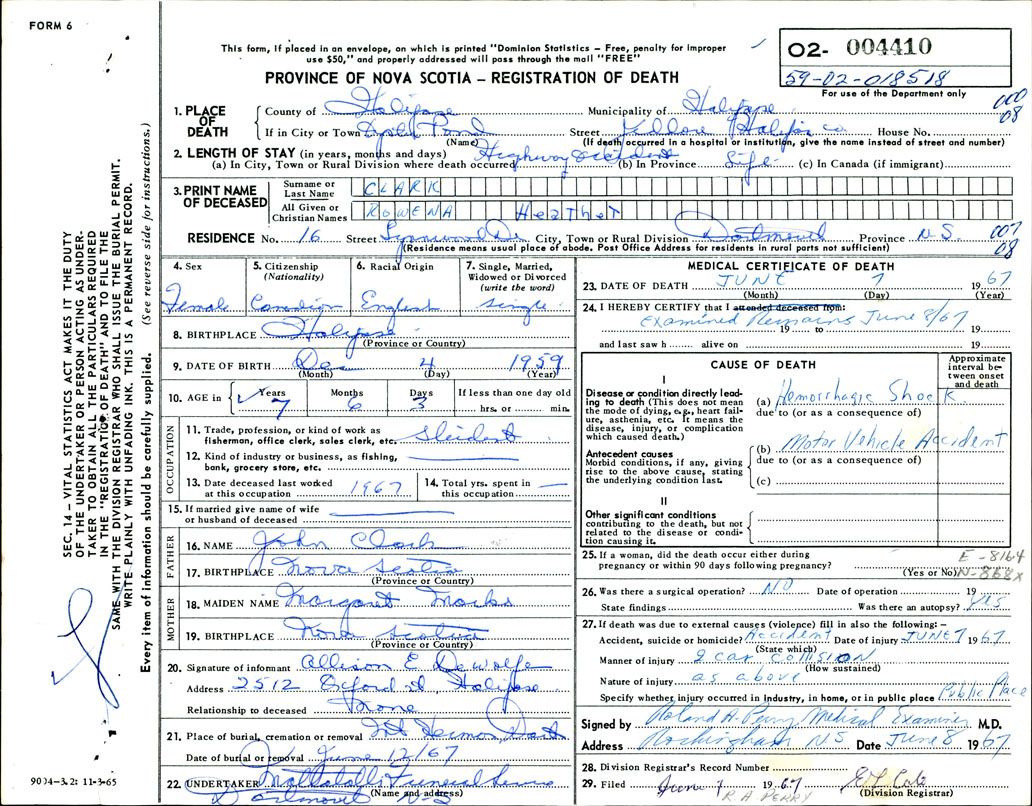 FORM 6
This form, if placed in an envelope, on which is printed "Dominion Statistics – Free, penalty for improper
use $50," and properly addressed will pass through the mail "FREE"
PROVINCE OF NOVA SCOTIA – REGISTRATION OF DEATH
O2- 004410
59-02-018518
For use of the Department only
000
08
1. PLACE OF DEATH
County of Halifax Municipality of Halifax
If in City or Town Pond Street Halifax Co House No.
(Name) (If death occurred in a hospital or institution, give the name instead of street and number)
2. LENGTH OF STAY (in years, months and days) Highway accident
(a) In City, Town or Rural Division where death occurred (b) In Province Life (c) In Canada (if immigrant)
3. PRINT NAME OF DECEASED
Surname or Last Name CLARK
All Given or Christian Names ROWENA Heather
RESIDENCE No. 16 Street Lynwood Dr City, Town or Rural Division Dartmouth Province N S
007
08
(Residence means usual place of abode. Post Office Address for residents in rural parts not sufficient)
4. Sex Female
5. Citizenship (Nationality) Canadian
6. Racial Origin English
7. Single, Married, Widowed or Divorced (write the word) single
8. BIRTHPLACE Halifax
(Province or Country)
9. DATE OF BIRTH Dec 4 1959
(Month) (Day) (Year)
10. AGE in Years 7 Months 6 Days 3 If less than one day old
hrs. or min.
OCCUPATION
11. Trade, profession, or kind of work as
fisherman, office clerk, sales clerk, etc. student
12. Kind of industry or business, as fishing,
bank, grocery store, etc.
13. Date deceased last worked
at this occupation 1967
14. Total yrs. spent in
this occupation
15. If married give name of wife
or husband of deceased
FATHER
16. NAME John Clark
17. BIRTHPLACE Nova Scotia
(Province or Country)
MOTHER
18. MAIDEN NAME Margaret Marks
19. BIRTHPLACE Nova Scotia
(Province or Country)
20. Signature of informant Allison E DeWolfe
Address 2512 Oxford St, Halifax
Relationship to deceased None
21. Place of burial, cremation or removal Mt Hermon, Dart
Date of burial or removal June 12/67
22. UNDERTAKER Mattatall's Funeral
(Name and address)
Dartmouth N-S
MEDICAL CERTIFICATE OF DEATH
23. DATE OF DEATH JUNE 7 1967
(Month) (Day) (Year)
24. I HEREBY CERTIFY that I attended deceased from:
Examined Remains June 8/67
19 to 19
and last saw h alive on 19
CAUSE OF DEATH
Approximate interval between onset and death
I
Disease or condition directly leading to death (This does not mean the mode of dying, e.g., heart failure, asthenia, etc. It means the disease, injury, or complication which caused death.)
(a) Hemorrhagic Shock
due to (or as a consequence of)
Antecedent causes
Morbid conditions, if any, giving rise to the above cause, stating the underlying condition last.
(b) Motor Vehicle Accident
due to (or as a consequence of)
(c)
II
Other significant conditions
contributing to the death, but not related to the disease or condition causing it.
25. If a woman, did the death occur either during
pregnancy or within 90 days following pregnancy?
(Yes or No)
E-8164
N-868X
26. Was there a surgical operation? NO Date of operation 19
State findings Was there an autopsy? Yes
27. If death was due to external causes (violence) fill in also the following: –
Accident, suicide or homicide? Accident Date of injury JUNE 7 1967
(State which)
Manner of injury 2 car collision
(How sustained)
Nature of injury as above
Specify whether injury occurred in industry, in home, or in public place Public Place
Signed by Roland A. Perry Medical Examiner M.D.
Address Rockingham NS Date June 8 1967
28. Division Registrar's Record Number
29. Filed June 9 1967
R.A PERRY
(Division Registrar)
SEC. 14 – VITAL STATISTICS ACT MAKES IT THE DUTY
OF THE UNDERTAKER OR PERSON ACTING AS UNDER-
TAKER TO OBTAIN ALL THE PARTICULARS REQUIRED
IN THE "REGISTRATION OF DEATH" AND TO FILE THE
SAME WITH THE DIVISION REGISTRAR WHO SHALL ISSUE THE BURIAL PERMIT.
WRITE PLAINLY WITH UNFADING INK. THIS IS A PERMANENT RECORD.
Every item of information should be carefully supplied. (See reverse side for instructions.)
9034-3.2: 11-3-65